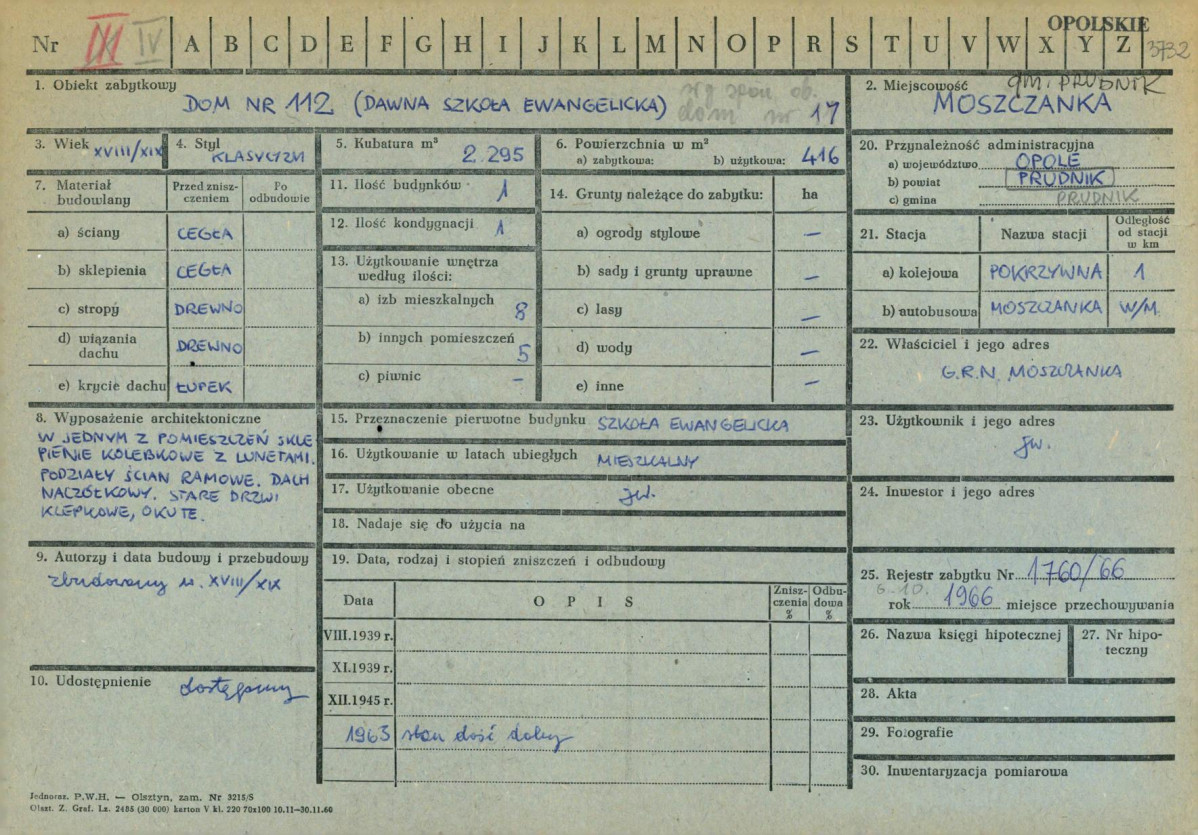 OPOLSKIE
Nr III IV A B C D E F G H I J K L M N O P R S T U V W X Y Z 3732
1. Obiekt zabytkowy
DOM NR 112 (DAWNA SZKOŁA EWANGELICKA)
dom nr 17
2. Miejscowość gm. PRUDNIK
MOSZCZANKA
3. Wiek XVIII/XIX
4. Styl KLASYCYZM
5. Kubatura m³ 2.295
6. Powierzchnia w m²
a) zabytkowa: b) użytkowa: 416
7. Materiał budowlany
Przed zniszczeniem
Po odbudowie
a) ściany CEGŁA
b) sklepienia CEGŁA
c) stropy DREWNO
d) wiązania dachu DREWNO
e) krycie dachu ŁUPEK
11. Ilość budynków 1
12. Ilość kondygnacji 1
13. Użytkowanie wnętrza
według ilości:
a) izb mieszkalnych 8
b) innych pomieszczeń 5
c) piwnic –
14. Grunty należące do zabytku: ha
a) ogrody stylowe –
b) sady i grunty uprawne –
c) lasy –
d) wody –
e) inne –
20. Przynależność administracyjna
a) województwo OPOLE
b) powiat PRUDNIK
c) gmina PRUDNIK
21. Stacja
Nazwa stacji
Odległość od stacji w km
a) kolejowa POKRZYWNA 1
b) autobusowa MOSZCZANKA W/M.
22. Właściciel i jego adres
G.R.N. MOSZCZANKA
8. Wyposażenie architektoniczne
W JEDNYM Z POMIESZCZEŃ SKLE
PIENIE KOLEBKOWE Z LUNETAMI.
PODZIAŁY ŚCIAN RAMOWE. DACH
NACZÓŁKOWY. STARE DRZWI
KLEPKOWE, OKUTE.
15. Przeznaczenie pierwotne budynku SZKOŁA EWANGELICKA
16. Użytkowanie w latach ubiegłych MIESZKALNY
17. Użytkowanie obecne jw.
18. Nadaje się do użycia na
23. Użytkownik i jego adres
jw.
24. Inwestor i jego adres
9. Autorzy i data budowy i przebudowy
zbudowany w. XVIII/XIX
10. Udostępnienie dostępny
19. Data, rodzaj i stopień zniszczeń i odbudowy
Data
O P I S
Zniszczenia %
Odbudowa %
VIII.1939 r.
XI.1939 r.
XII.1945 r.
1963 stan dość dobry
25. Rejestr zabytku Nr 1760/66
6.10.
rok 1966 miejsce przechowywania
26. Nazwa księgi hipotecznej
27. Nr hipoteczny
28. Akta
29. Fotografie
30. Inwentaryzacja pomiarowa
Jednoraz. P.W.H. — Olsztyn, zam. Nr 3215/S
Olszt. Z. Graf. Lz. 2485 (30 000) karton V kl. 220 70x100 10.11—30.11.60